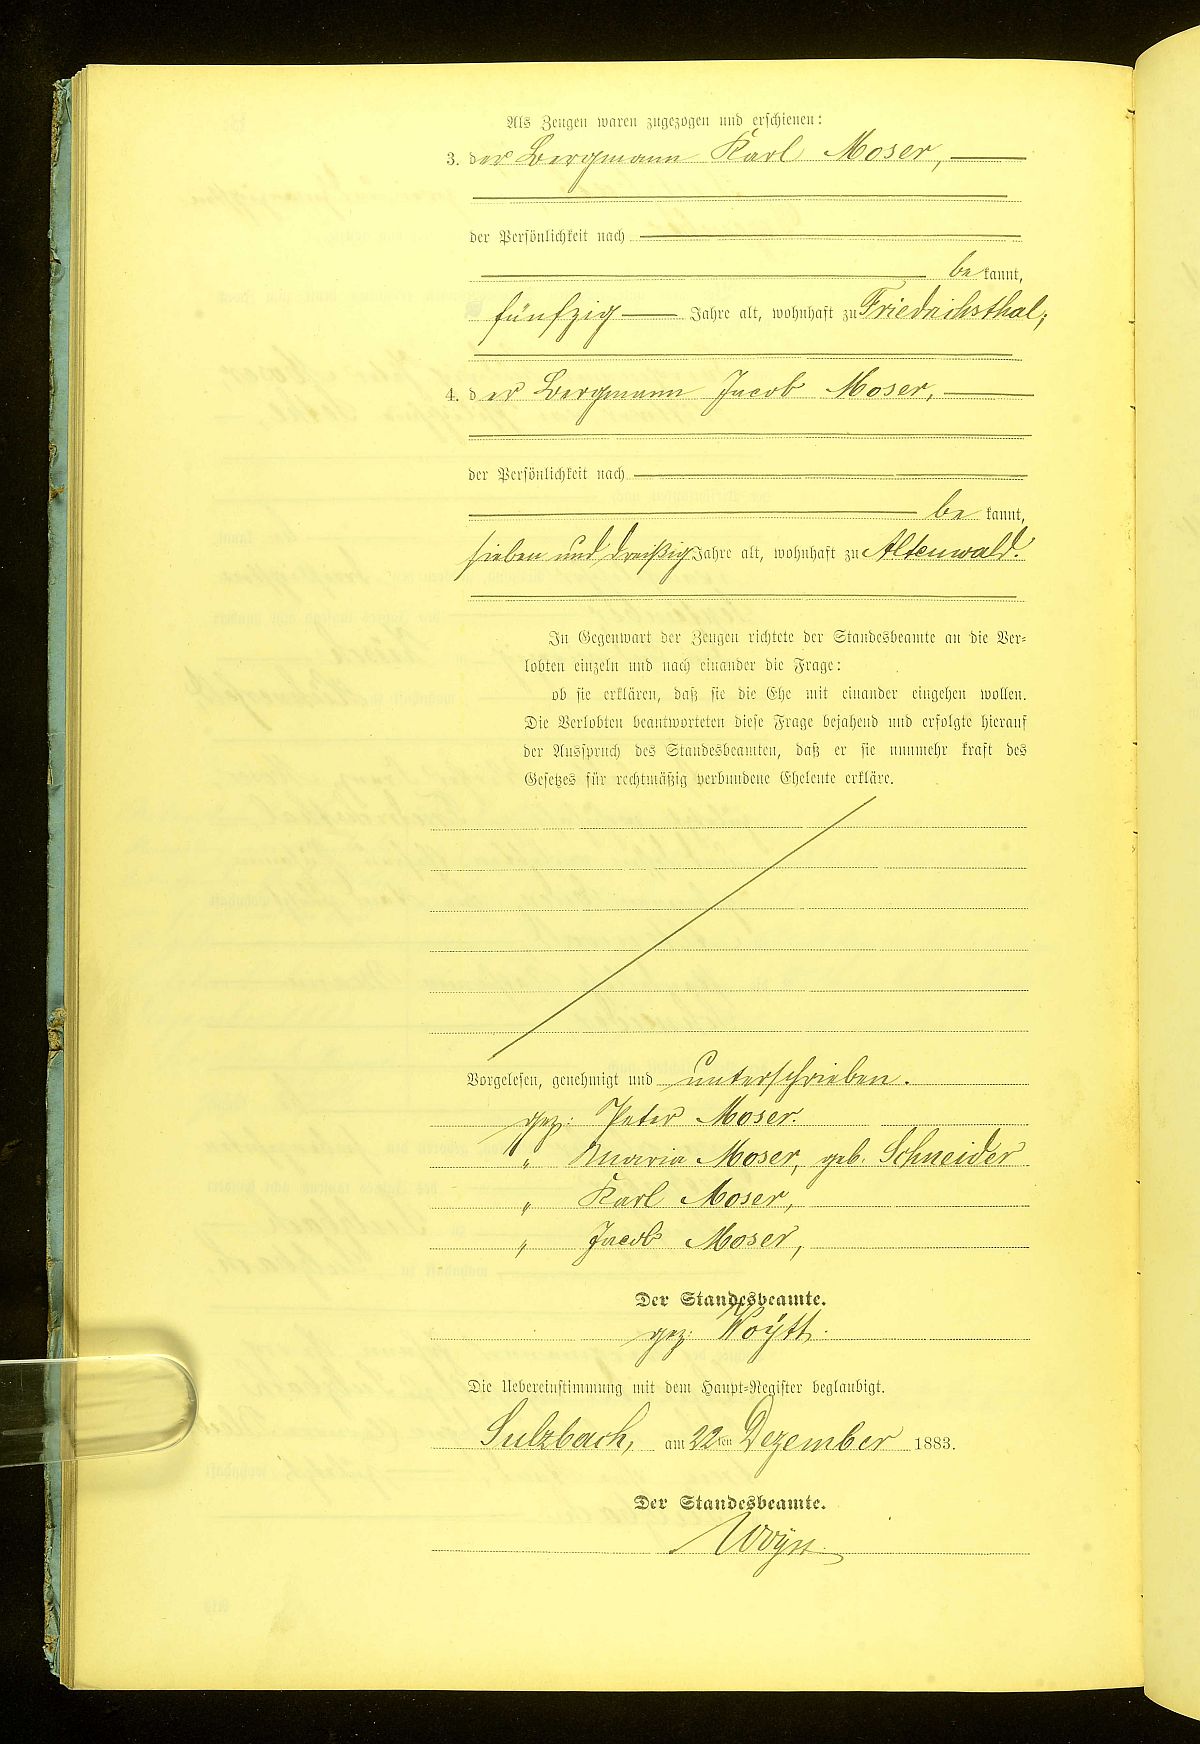 Als Zeugen waren zugezogen und erschienen:
3. der Bergmann Karl Moser,
der Persönlichkeit nach
bekannt,
fünfzig Jahre alt, wohnhaft zu Friedrichsthal,
4. der Bergmann Jacob Moser,
der Persönlichkeit nach
bekannt,
sieben und dreißig Jahre alt, wohnhaft zu Altenwald.
In Gegenwart der Zeugen richtete der Standesbeamte an die Ver-
lobten einzeln und nach einander die Frage:
ob sie erklären, daß sie die Ehe mit einander eingehen wollen.
Die Verlobten beantworteten diese Frage bejahend und erfolgte hierauf
der Ausspruch des Standesbeamten, daß er sie nunmehr kraft des
Gesetzes für rechtmäßig verbundene Eheleute erkläre.
Vorgelesen, genehmigt und unterschrieben.
gez: Peter Moser.
" Maria Moser, geb. Schneider
" Karl Moser,
" Jacob Moser,
Der Standesbeamte.
gez: Woÿtt.
Die Uebereinstimmung mit dem Haupt-Register beglaubigt.
Sulzbach, am 22ten Dezember 1883.
Der Standesbeamte.
Woÿtt